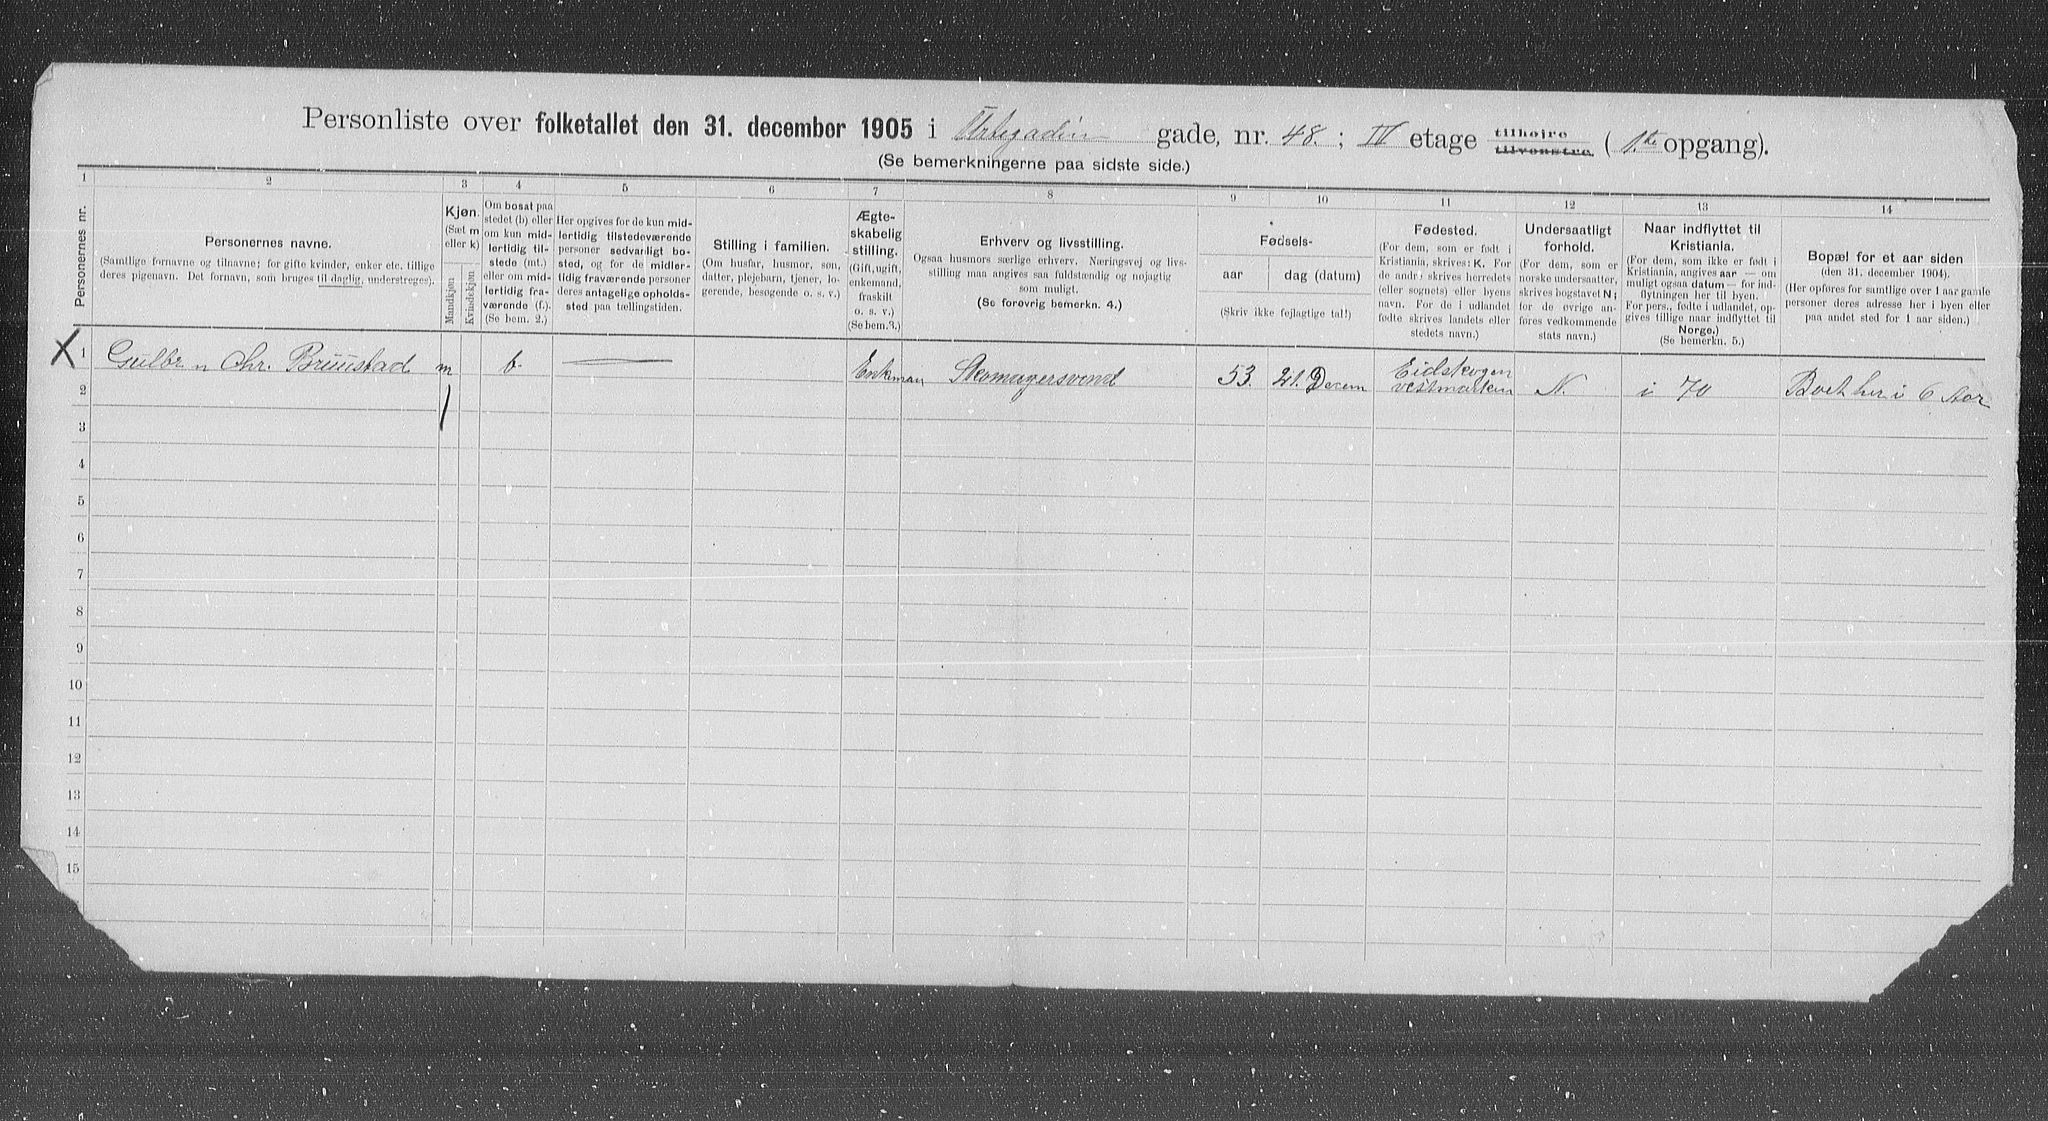 Personliste over folketallet den 31. december 1905 i Urtegaden gade, nr. 48. ; IV etage tilhøjre tilvenstre ( 1.ste opgang).
(Se bemerkningerne paa sidste side.)
1 2 3 4 5 6 7 8 9 10 11 12 13 14
Personernes nr.
Personernes navne.
(Samtlige fornavne og tilnavne; for gifte kvinder, enker etc. tillige
deres pigenavn. Det fornavn, som bruges til daglig, understreges).
Kjøn.
(Sæt m
eller k)
Mandkjøn
Kvindekjøn
Om bosat paa
stedet (b) eller
om kun mid-
lertidig til-
stede (mt.)
eller om mid-
lertidig fra-
værende (f.).
(Se bem. 2.)
Her opgives for de kun mid-
lertidig tilstedeværende
personer sedvanligt bo-
sted, og for de midler-
tidig fraværende personer
deres antagelige opholds-
sted paa tællingstiden.
Stilling i familien.
(Om husfar, husmor, søn,
datter, plejebarn, tjener, lo-
gerende, besøgende o. s. v.)
Ægte-
skabelig
stilling.
(Gift, ugift,
enkemand,
fraskilt
o. s. v.)
(Se bem. 3.)
Erhverv og livsstilling.
Ogsaa husmors særlige erhverv. Næringsvej og livs-
stilling maa angives saa fuldstændig og nøjagtig
som muligt.
(Se forøvrig bemerkn. 4.)
Fødsels-
aar
dag (datum)
(Skriv ikke fejlagtige tal!)
Fødested.
(For dem, som er født i
Kristiania, skrives: K. For
de andre skrives herredets
(eller sognets) eller byens
navn. For de i udlandet
fødte skrives landets eller
stedets navn.)
Undersaatligt
forhold.
(For dem, som er
norske undersaatter,
skrives bogstavet N;
for de øvrige an-
føres vedkommende
stats navn.)
Naar indflyttet til
Kristiania.
(For dem, som ikke er født i
Kristiania, angives aar — om
muligt ogsaa datum — for ind-
flytningen her til byen.
For pers., fødte i udlandet, op-
gives tillige naar indflyttet til
Norge.)
(Se bemerkn. 5.)
Bopæl for et aar siden
(den 31. december 1904).
(Her opføres for samtlige over 1 aar gamle
personer deres adresse her i byen eller
paa andet sted for 1 aar siden.)
X 1 Gulbr n Chr. Bruustad m b. Enkman Skomagersvend 53. 21. Decem Eidskogen
vestmarken N. i 70 Boet her i 6 Aar
2
3
4
5
6
7
8
9
10
11
12
13
14
15